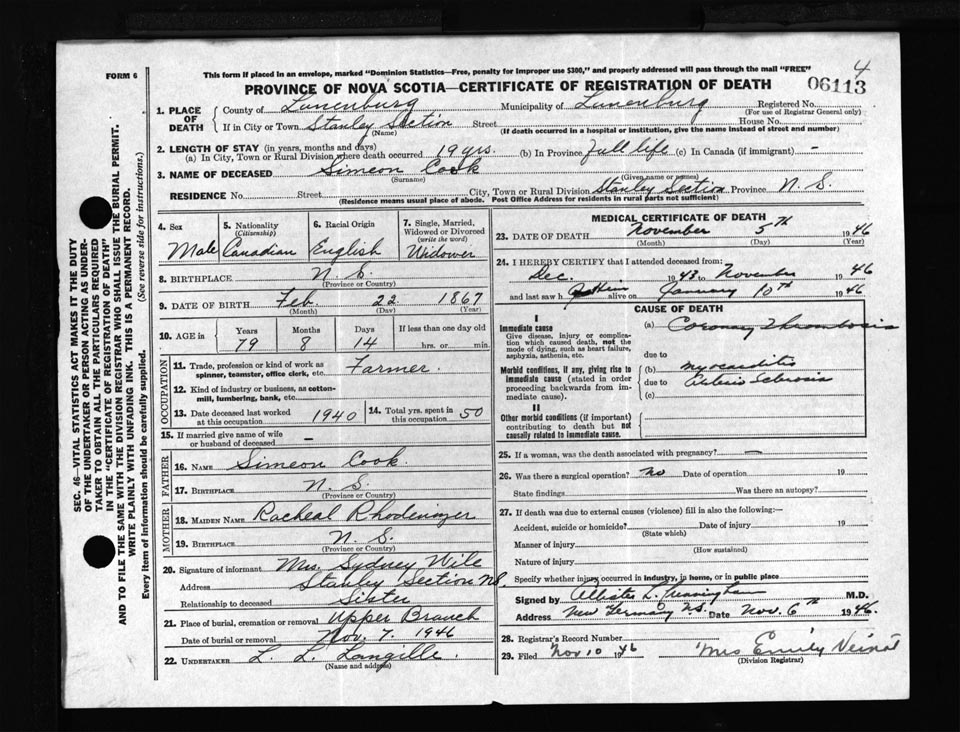 4
FORM 6
This form if placed in an envelope, marked "Dominion Statistics—Free, penalty for improper use $300," and properly addressed will pass through the mail "FREE"
PROVINCE OF NOVA SCOTIA—CERTIFICATE OF REGISTRATION OF DEATH
06113
1. PLACE OF DEATH
County of Lunenburg Municipality of Lunenburg Registered No.
(For use of Registrar General only)
If in City or Town Stanley Section Street House No.
(Name) (If death occurred in a hospital or institution, give the name instead of street and number)
2. LENGTH OF STAY (in years, months and days)
(a) In City, Town or Rural Division where death occurred 19 yrs. (b) In Province Full life (c) In Canada (if immigrant) -
3. NAME OF DECEASED Simeon Cook
(Surname) (Given name or names)
RESIDENCE No. Street City, Town or Rural Division Stanley Section Province N. S.
(Residence means usual place of abode. Post Office Address for residents in rural parts not sufficient)
4. Sex
Male
5. Nationality
(Citizenship)
Canadian
6. Racial Origin
English
7. Single, Married, Widowed or Divorced
(write the word)
Widower
8. BIRTHPLACE N. S.
(Province or Country)
9. DATE OF BIRTH Feb. 22 1867
(Month) (Day) (Year)
10. AGE in
Years Months Days If less than one day old
79 8 14 hrs. or min.
OCCUPATION
11. Trade, profession or kind of work as
spinner, teamster, office clerk, etc. Farmer.
12. Kind of industry or business, as cotton-
mill, lumbering, bank, etc.
13. Date deceased last worked
at this occupation 1940
14. Total yrs. spent in
this occupation 50
15. If married give name of wife
or husband of deceased -
FATHER
16. NAME Simeon Cook.
17. BIRTHPLACE N. S.
(Province or Country)
MOTHER
18. MAIDEN NAME Racheal Rhodenizer
19. BIRTHPLACE N. S.
(Province or Country)
20. Signature of informant Mrs. Sydney Wile
Address Stanley Section N.S.
Relationship to deceased Sister
21. Place of burial, cremation or removal Upper Branch
Date of burial or removal Nov. 7. 1946
22. UNDERTAKER L. L. Langille.
(Name and address)
MEDICAL CERTIFICATE OF DEATH
23. DATE OF DEATH November 5th 1946
(Month) (Day) (Year)
24. I HEREBY CERTIFY that I attended deceased from:
Dec. 1943 to November 1946
and last saw h him alive on January 10th 1946
CAUSE OF DEATH
I
Immediate cause
Give disease, injury or complica-
tion which caused death, not the
mode of dying, such as heart failure,
asphyxia, asthenia, etc.
(a) Coronary Thrombosis
due to
Morbid conditions, if any, giving rise to
immediate cause (stated in order
proceeding backwards from im-
mediate cause).
(b) myocarditis
due to Arterio Sclerosis
(c)
II
Other morbid conditions (if important)
contributing to death but not
causally related to immediate cause.
25. If a woman, was the death associated with pregnancy? —
26. Was there a surgical operation? no Date of operation 19
State findings Was there an autopsy?
27. If death was due to external causes (violence) fill in also the following:—
Accident, suicide or homicide? Date of injury 19
(State which)
Manner of injury
(How sustained)
Nature of injury
Specify whether injury occurred in industry, in home, or in public place
Signed by M.D.
Address New Germany N.S. Date Nov. 6th 1946.
28. Registrar's Record Number
29. Filed Nov 10 1946 Mrs Emily Veinot
(Division Registrar)
SEC. 46—VITAL STATISTICS ACT MAKES IT THE DUTY
OF THE UNDERTAKER OR PERSON ACTING AS UNDER-
TAKER TO OBTAIN ALL THE PARTICULARS REQUIRED
IN THE "CERTIFICATE OF REGISTRATION OF DEATH"
AND TO FILE THE SAME WITH THE DIVISION REGISTRAR WHO SHALL ISSUE THE BURIAL PERMIT.
WRITE PLAINLY WITH UNFADING INK. THIS IS A PERMANENT RECORD.
Every item of information should be carefully supplied. (See reverse side for instructions.)